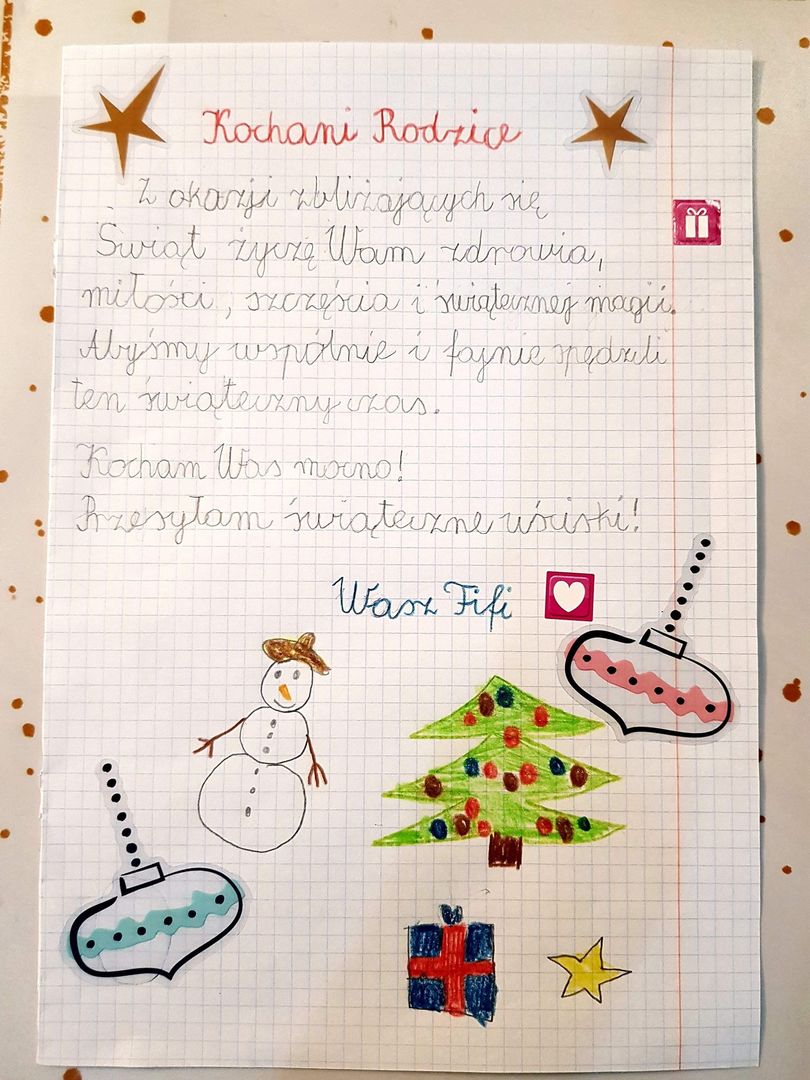 Kochani Rodzice
Z okazji zbliżających się
Świąt życzę Wam zdrowia,
miłości, szczęścia i świątecznej magii.
Abyśmy wspólnie i fajnie spędzili
ten świąteczny czas.
Kocham Was mocno!
Przesyłam świąteczne uściski!
Wasz Fifi